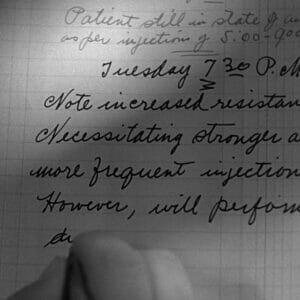 Patient still in state of
as per injections of 5:00-900
Tuesday 7 30 P.M
Note increased resistan
Necessitating stronger a
more frequent injection
However, will perform